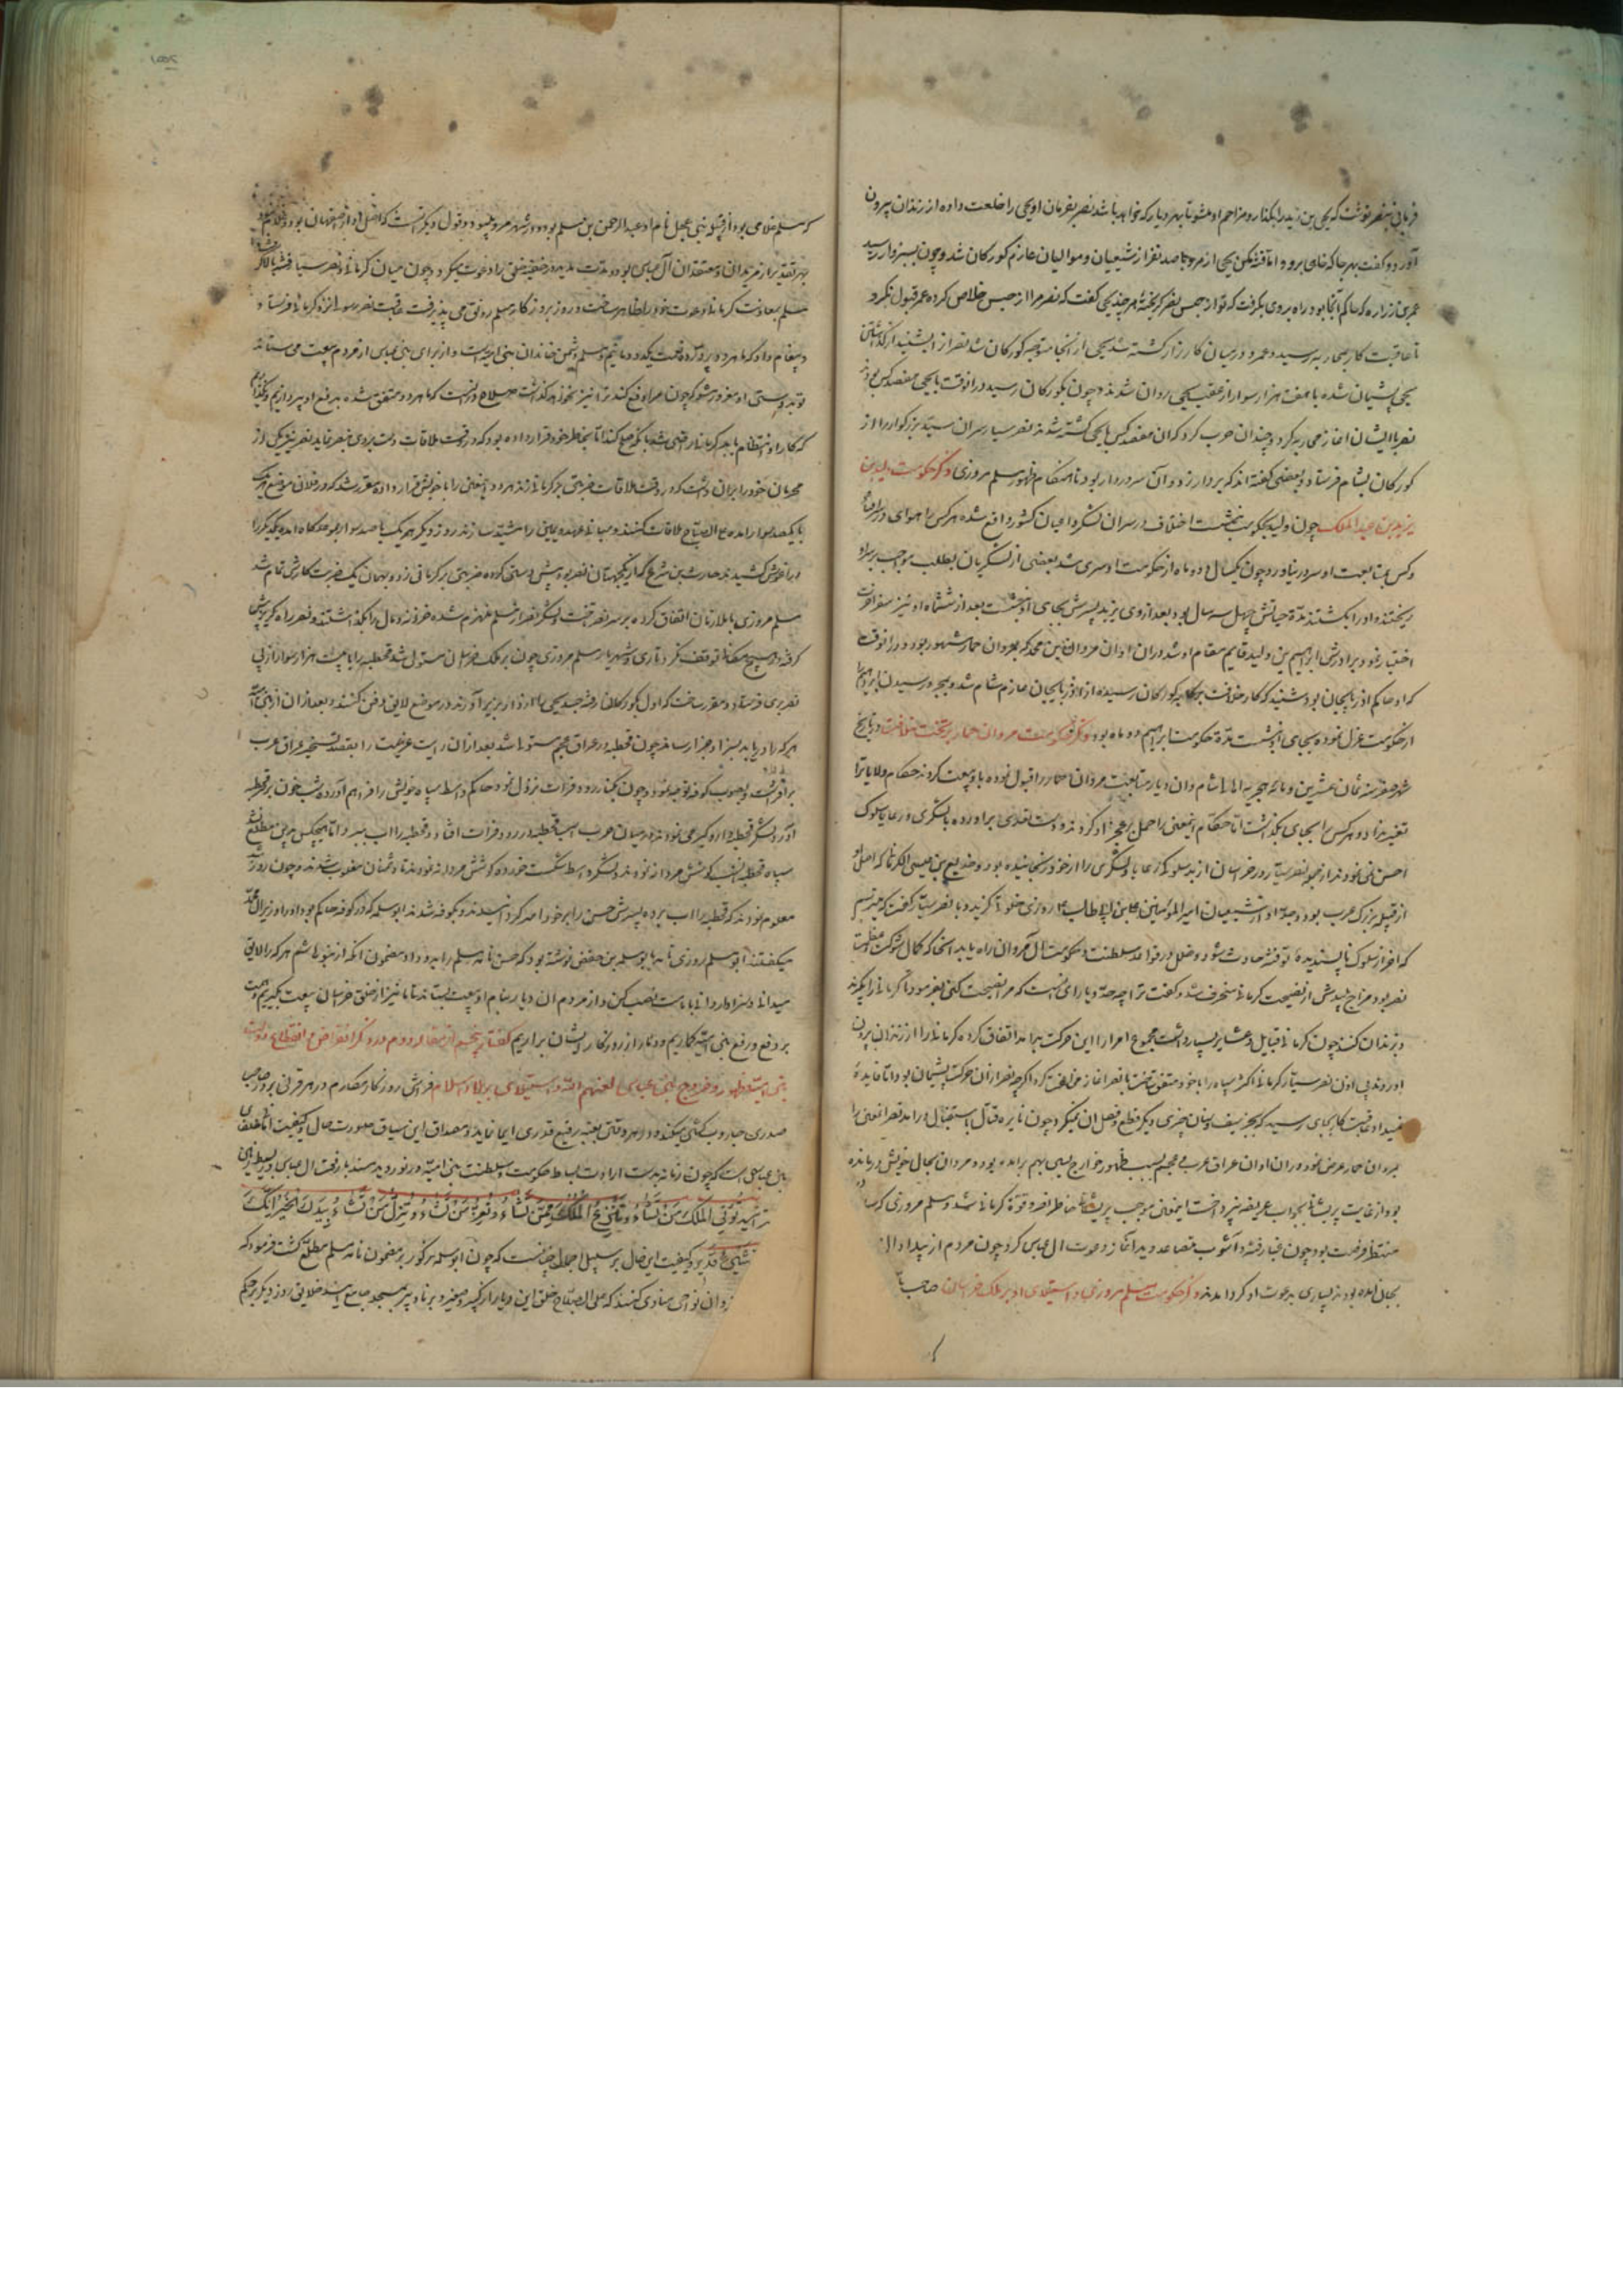 فرمانی بنصر نوشت که یحیی بن زید را بگذار و مزاحم او مشو تا بهر دیار که خواهد باشد نصر بفرمان او یحیی را خلعت داده از زندان بیرون
آورد و گفت بهر جا که خواهی برو و اما فتنه مکن یحیی از مرو با صد نفر از شیعیان و موالیان عازم کورکان شد و چون بسبزوار رسید
عمر بن زراره که حاکم آنجا بود راه بروی بگرفت که تو از حبس نصر گریخته هر چند یحیی گفت که نصر مرا از حبس خلاص کرده عمر قبول نکرد
تا عاقبت کار بمحاربه رسید و عمرو در میان کارزار کشته شد یحیی از انجا متوجه کورکان شد نصر از
یحیی پشیمان شده با هفت هزار سوار از عقب یحیی روان شدند و چون بکورکان رسید در انوقت با یحیی هفصد کس بودند
نصر با ایشان اغاز محاربه کرد و چندان حرب کرد که ان هفصد کس با یحیی کشته شدند نصر سیار سران سید بزرگوار را از
کورکان بشام فرستاد و بعضی گفته اند که بردار زد و آن سرور بردار بود تا هنگام ظهور مسلم مروزی ذکر حکومت ولید بن
یزید بن عبد الملک چون ولید بحکومت بنشست اختلاف در سران لشکر و اعیان کشور واقع شده هر کس را هوای در سر افتاد
و کس بمتابعت او سر در نیاورد و چون یکسال و دو ماه از حکومت او سپری شد بعضی از لشکریان بطلب مواجب بر سر او
ریختند و او را بکشتند مدة حیاتش چهل سه سال بود بعد از وی یزید پسرش بجای او بنشست بعد از ششماه او نیز سفر اخرت
اختیار نمود برادرش ابراهیم بن ولید قایم مقام او شد در ان اوان مروان بن محمد که بمروان حمار مشهور بود و در انوقت
که او حاکم اذربایجان بود شنید که کار خلافت رسیده از اذربایجان عازم شام شد و بمجرد رسیدن ابراهیم را
از حکومت عزل نموده بجای او نشست مدة حکومت ابراهیم دو ماه بود ذکر حکومت مروان حمار بر تخت خلافت در تاریخ
شهر صفر سنه ثمان عشرین و مائه هجریه اهالی شام و ان دیار متابعت مروان حمار را قبول نموده با او بیعت کردند حکام ولایات را
تغییر نداد و هر کس را بجای بگذاشت اما حکام اینمعنی را حمل بر عجز او کردند و دست تعدی براورده با لشکری و رعایا سلوک
احسن نمی نمودند از جمله نصر سیار در خراسان از بد سلوکی رعایا و لشکری را از خود رنجانیده بود و جدیع بن عیسی الکرمانی که اصل او
از قبیله بزرک عرب بود و جد او از شیعیان امیر المؤمنین علی بن ابی طالب ع روزی خلوتی گزیده با نصر سیار گفت که میترسم
که اخر از سلوک ناپسندیده تو فتنه حادث شود و خلل در قواعد سلطنت و حکومت ال مروان راه یابد از انجا که کمال شوکت و عظمت
نصر بود مزاج پلیدش از نصیحت کرمانی منحرف شد و گفت ترا چه حد و یارای انست که مرا نصیحت کنی بفرمود تا کرمانی را بگیرند
و بزندان کنند چون کرمانی قبایل و عشایر بسیار داشت مجموع امرا را این حرکت بد امد اتفاق کرده کرمانی را از زندان بیرون
اوردند بی اذن نصر سیار کرمانی اکثر سپاه را با خود متفق ساخت با نصر اغاز مخالفت کرد اگرچه نصر از ان حرکت پشیمان بود اما فایده
نمیداد عاقبت کار بجای رسید که بجز سیف و سنان چیزی دیگر قطع و فصل ان نمیکرد چون نایره قتال باشتعال در امد نصر اینمعنی را
بمروان حمار عرض نمود در ان اوان عراق عرب و عجم بسبب ظهور خوارج بسی بهم برامده بود و مروان بحال خویش درمانده
بود از غایت پریشانی بجواب عریضه نپرداخت اینمعنی موجب پریشانی خاطر نصر و قوة کرمانی شد و مسلم مروزی که سالها
منتظر فرصت بود چون غبار فتنه و اشوب متصاعد دید اغاز دعوت ال عباس کرد چون مردم از بیداد ال
بجان امده بودند بسیاری بدعوت او گرد امدند ذکر حکومت مسلم مروزی و استیلای او بر ملک خراسان صاحب
که مسلم غلامی بود از قبیله بنی عجل نام او عبد الرحمن بن مسلم بود و در شهر مرو میبود و قول دیگر انست که اصل او از صفاهان بود و
بهر تقدیر از مریدان و معتقدان آل عباس بود و مدت مدید در خفیه خلق را دعوت میکرد و چون میان کرمانی و نصر سیار فتنه بالا گرفت
مسلم بمعاونت کرمانی دعوت خود را ظاهر ساخت و روز بروز کار مسلم رونق می پذیرفت عاقبت نصر رسول نزد کرمانی فرستاد
و پیغام داد که ما هر دو پرورده نعمت یکدودمانیم و مسلم دشمن خاندان بنی امیه است و از برای بنی عباس از مردم بیعت می ستاند
تو بدوستی او مغرور مشو که چون مرا دفع کند ترا نیز نخواهد گذاشت صلاح در انست که ما هر دو متفق شده بدفع او پردازیم و نگذاریم
که کار او انتظام یابد کرمانی راضی شد با نصر صلح کند اما بخاطر خود قرار داده بود که در وقت ملاقات دست بردی بنصر نماید نصر نیز یکی از
محرمان خود را بران داشت که در وقت ملاقات ضربتی بر کرمانی زند هر دو اینمعنی را با خویش قرار داده مقرر شد که در فلان موضع هر یک
با یکصد سوار امده علی الصباح ملاقات کنند و مبانی عهد و پیمان را مشید سازند روز دیگر هر یک با صد سوار بموعدگاه امده یکدیگر را
در اغوش کشیدند حارث بن شریح که از یکجهتان نصر بود پیش دستی کرده ضربتی بر کرمانی زد و بهمان یک ضربت کارش تمام شد
مسلم مروزی با ملازمان اتفاق کرده بر سر نصر تاخت و لشکر نصر از مسلم منهزم شده خزینه و مال را بگذاشتند و نصر راه گریز پیش
گرفته در هیچ مکان توقف نکرد تا ری و شهریار مسلم مروزی چون بر ملک خراسان مستولی شد قحطبه را با بیست هزار سوار از پی
نصر بری فرستاد و مقرر ساخت که اول بکورکان رفته جسد یحیی را از دار بزیر آورند و در موضع لایق دفن کنند و بعد از ان از بنی امیه
هر که را دریابد بسزا و جزا رساند چون قحطبه در عراق عجم مستولی شد بعد از ان رایت عزیمت را بقصد تسخیر عراق عرب
برافراشت و بصوب کوفه توجه نمود و چون بکنار رود فرات نزول نمود حاکم واسط سپاه خویش را فراهم آورده شبیخون بر قحطبه
آورد لشکر قحطبه دار و گیر می نمودند در میان حرب اسب قحطبه در رود فرات افتاد و قحطبه را اب ببرد اما هیچکس بدین مطلع نشد
سپاه قحطبه انشب کوشش مردانه نمودند و لشکر واسط شکست خورده کوشش مردانه نمودند تا دشمنان مغلوب شدند و چون روز شد
معلوم نمودند که قحطبه را اب برده پسرش حسن را بر خود امیر گردانیدند و بکوفه شدند ابو سلمه که در کوفه حاکم بود او را وزیر ال محمد
میگفتند ابو مسلم مروزی نامه بابو سلمه بن حفص نوشته بود که حسن نامه مسلم را بدو داد مضمون انکه از بنی هاشم هر که را لایق
میدانی و سزاوار دانی بامامت نصب کن و از مردم ان دیار بنام او بیعت بستان تا ما نیز از خلق خراسان بیعت بگیریم و همت
بر دفع و رفع بنی امیه گماریم و دمار از روزگار ایشان براریم گفتار پنجم از مقاله دوم در ذکر انقراض و انقطاع دولت
بنی امیه و ظهور و خروج بنی عباس لعنهم الله و استیلای بر بلاد اسلام فراش روزگار مکارم در هر قرنی بر در صاحب
صدری جاروب کشی میکند و در هر وقتی بعتبه رفیع قدری ایما نماید و مصداق این سیاق صورت حال و کیفیت
بنی عباس است که چون زمانه بدست ارادت بساط حکومت و سلطنت بنی امیه در نوردید مسند بارفعت ال عباس در بسیط
تؤتی الملک من تشاء وتنزع الملک ممن تشاء وتعز من تشاء وتذل من تشاء بیدک الخیر انک
شیء قدیر و کیفیت این حال بر سبیل اجمال چنانست که چون ابو سلمه مزکور بر مضمون نامه مسلم مطلع گشت فرمود که
در ان نواحی منادی کنند که علی الصباح خلق این دیار از کبیر و صغیر و برنا و پیر بمسجد جامع ایند خلایق روز دیگر بر حکم